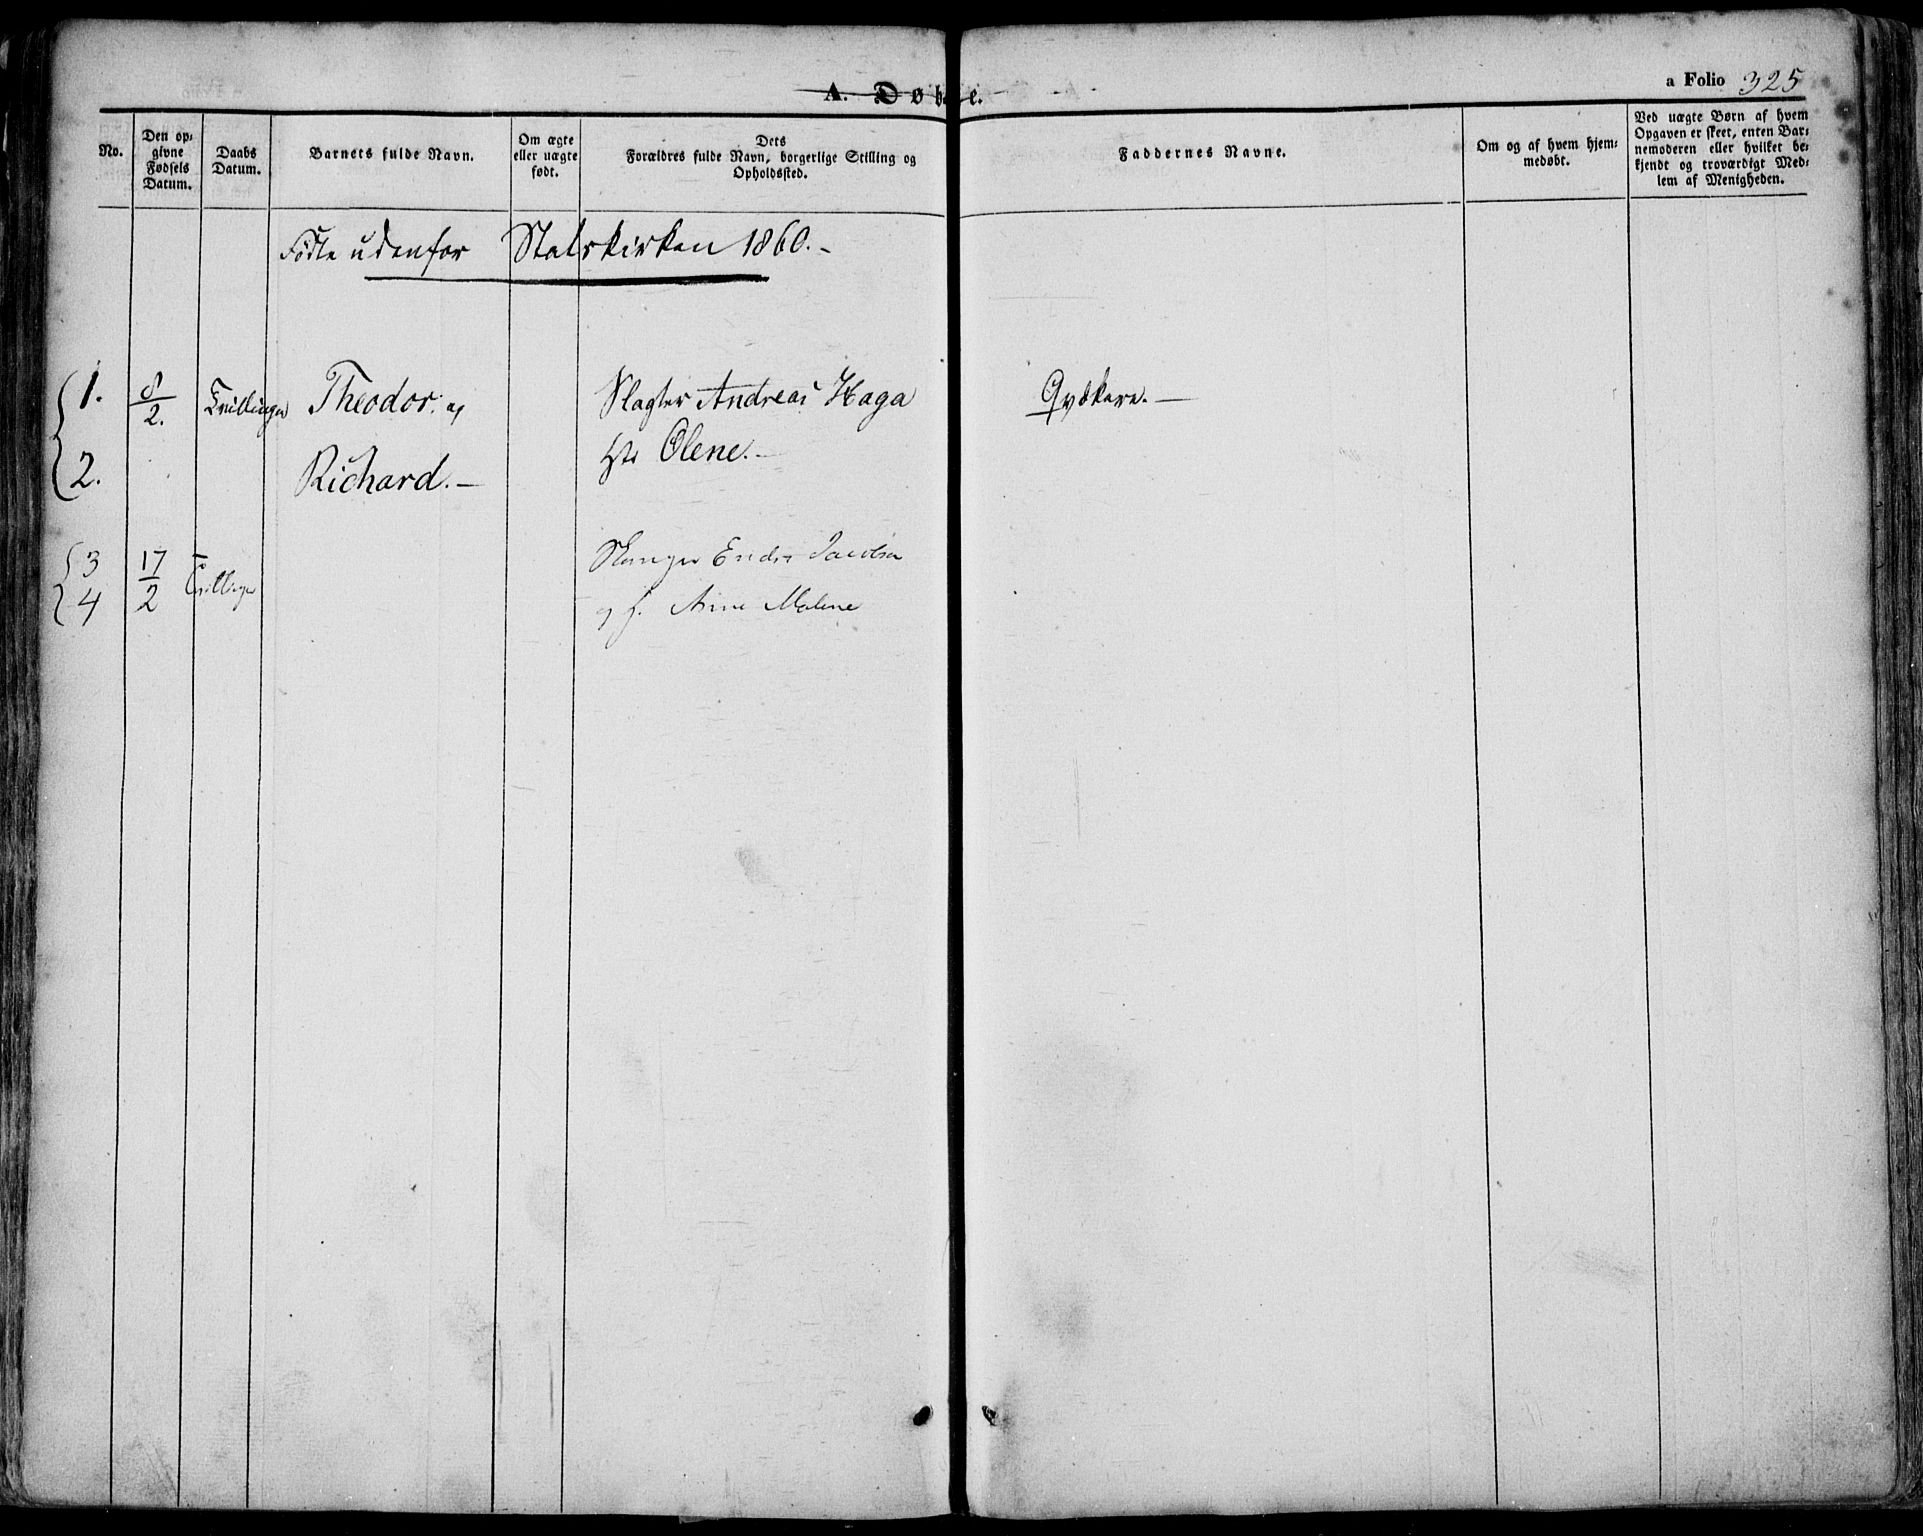 A. Døbte.
a Folio 325
No.
Den op-
givne
Fødsels
Datum.
Daabs
Datum.
Barnets fulde Navn.
Om ægte
eller uægte
født.
Dets
Forældres fulde Navn, borgerlige Stilling og
Opholdssted.
Faddernes Navne.
Om og af hvem hjem-
medøbt.
Ved uægte Børn af hvem
Opgaven er skeet, enten Bar-
nemoderen eller hvilket be-
kjendt og troværdigt Med-
lem af Menigheden.
Födte udenfor Statskirken 1860.-
1. 8/2. Tvillinger Theodor. og Slagter Andreas Haga Qvækere.-
2. Richard.- Olene.-
3 17/2 Tvillinger Endre Jacobsen
4 og f. Anne Malene